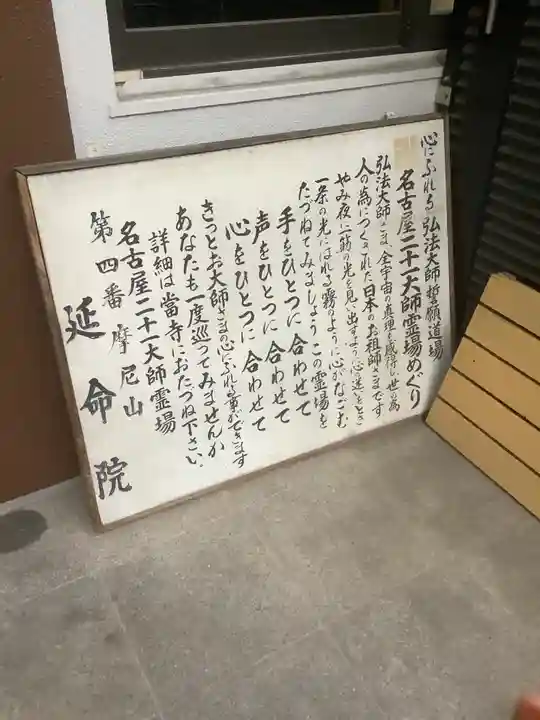 心にふれる 弘法大師誓願道場
名古屋二十一大師霊場めぐり
弘法大師さま、全宇宙の真理を感得し、世の為
人の為につくされた日本のお祖師さまです
やみ夜に一筋の光を見い出すように心の迷いをとき
一条の光にはれる霧のように心がなごむ
たづねてみましょうこの霊場を
手をひとつに合わせて
声をひとつに合わせて
心をひとつに合わせて
きっとお大師さまの心にふれる事ができます
あなたも一度巡ってみませんか
詳細は當寺におたづね下さい、
名古屋二十一大師霊場
第四番 摩尼山
延命院